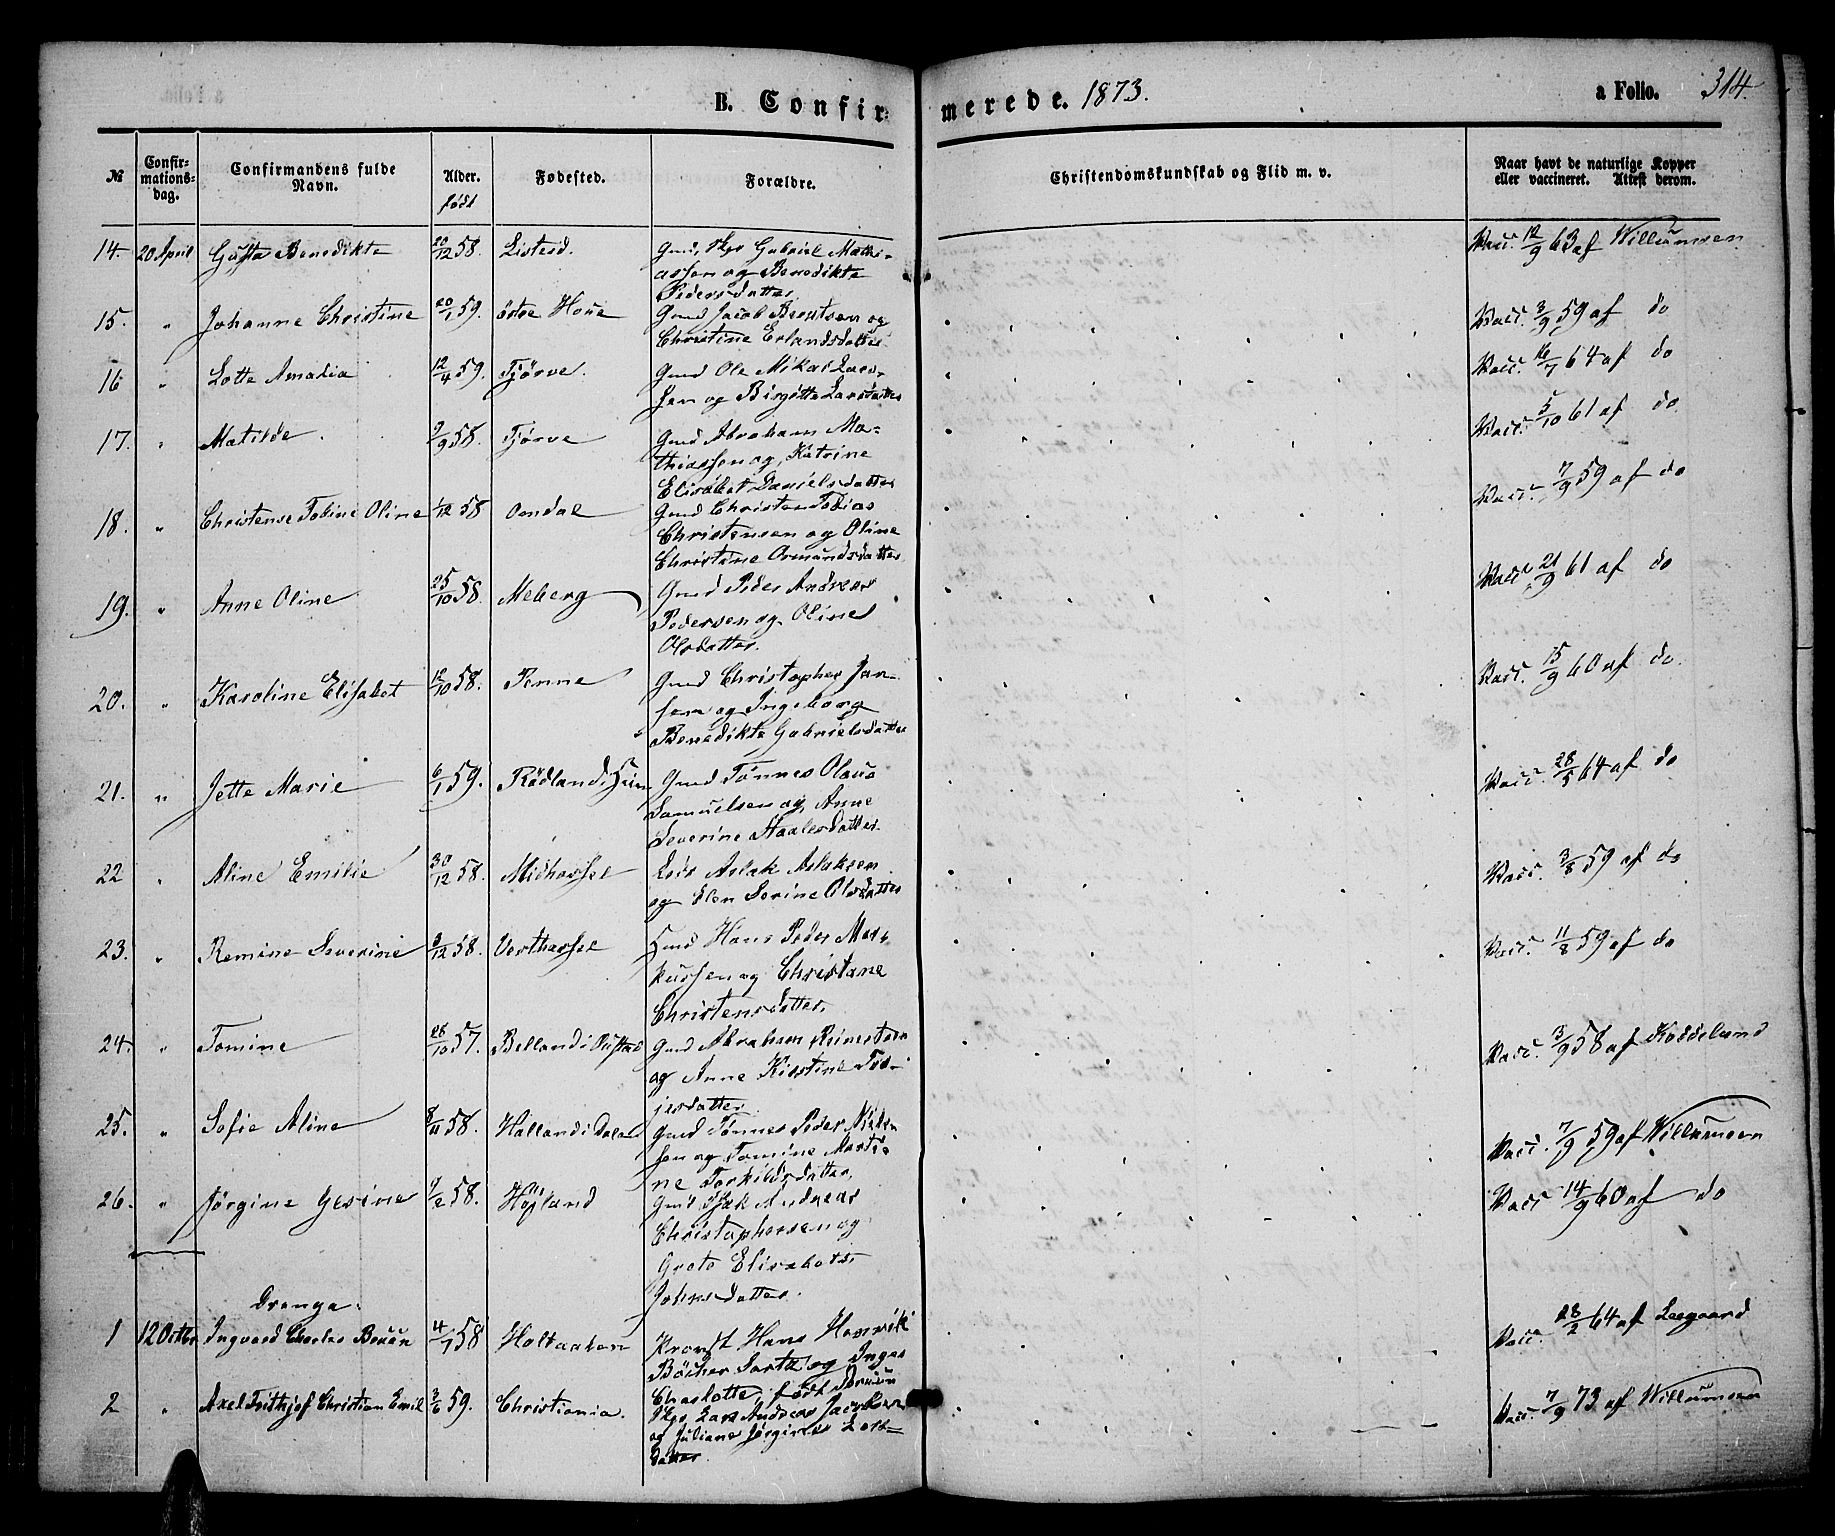 B. Confirmerede. 1873. a Folio. 314.
№ Confirmationsdag. Confirmandens fulde Navn. Alder. født Fødested. Forældre. Christendomskundskab og Flid m. v. Naar havt de naturlige Kopper eller vaccineret. Attest derom.
14. 20 April Gusta Benedikte 20/12 58. Listeid. Gmd. Skpr Gabriel Mathi- Vacc. 12/9 63 af Willumsen
assen og Benedikte
Pedersdatter
15. " Johanne Christine 20/1 59. østre Houe Gmd Jacob Berntsen og Vacc. 3/9 59 af do
Christine Erlandsdatter
16 " Lotte Amadia 12/4 59. Tjørve. Gmd Ole Mikal Lars- Vacc. 16/7 64 af do
sen og Birgitte Larsdatter
17. " Matilde. 9/9 58. Tjørve Gmd Abraham Ma- Vacc. 5/10 61 af do
thiassen og Katrine
Elisabet Danielsdatter
18. " Christense Tobine Oline 1/12 58 Omdal Gmd Christen Tobias Vacc. 7/9 59 af do
Christensen og Oline
Christine Osmundsdatter
19. " Anne Oline 25/10 58. Meberg Gmd Peder Andreas Vacc. 21/9 61 af do
Pedersen og Oline
Olsdatter.
20. " Karoline Elisabet 12/10 58. Penne Gmd Christopher Jan- Vacc. 15/9 60 af do.
sen og Ingeborg
Benedikte Gabrielsdatter
21. " Jette Marie 6/1 59. Rødland i Gmd Tønnes Olaus Vacc. 28/5 64 af do
Samuelsen og Anne
Severine Staalesdatter
22 " Aline Emilie 30/12 58. Midhassel Aslak Aslaksen Vacc. 3/8 59 af do
og Elen Serine Olsdatter
23. " Remine Severine 3/12 58. Vesthassel Gmd Hans Peder Mar- Vacc. 11/8 59 af do
kussen og Christane
Christensdatter.
24. " Tomine 28/10 57. Belland i Gmd Abraham Reinertsen Vacc. 3/9 58 af Koddeland
og Anne Kirstine Tor-
jesdatter
25. " Sofie Aline 8/11 58. Halland i Gmd Tønnes Peder Niel- Vacc. 7/9 59 af Willumsen
sen og Tomine Marti-
ne Torkildsdatter,
26. " Jørgine Gesine 7/2 58. Højland Gmd Isak Andreas Vacc 14/9 60 af do
Christophersen og
Grete Elisabet
Johnsdatter.
Drenge.
1 12 Octbr Ingvard Charles 4/1 58 Holtaaben Hans Henrik Vacc. 28/2 64 af Leegaard
Bøcher og Inger
Charlotte, født
2 " Axel Frithjof Christian Emil 3/6 59. Christiania. Skpr Lars Andreas Jacobsen Vac. 7/9 73 af Willumsen
og Juliane Jørgine
datter.